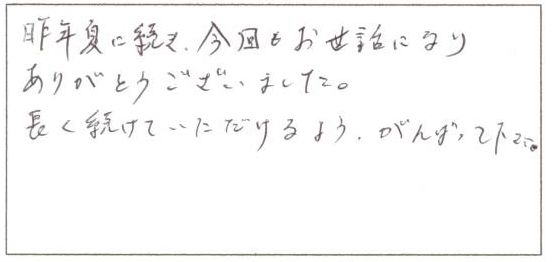 昨年夏に続き、今回もお世話になり
ありがとうございました。
長く続けていただけるよう、がんばって下さい。